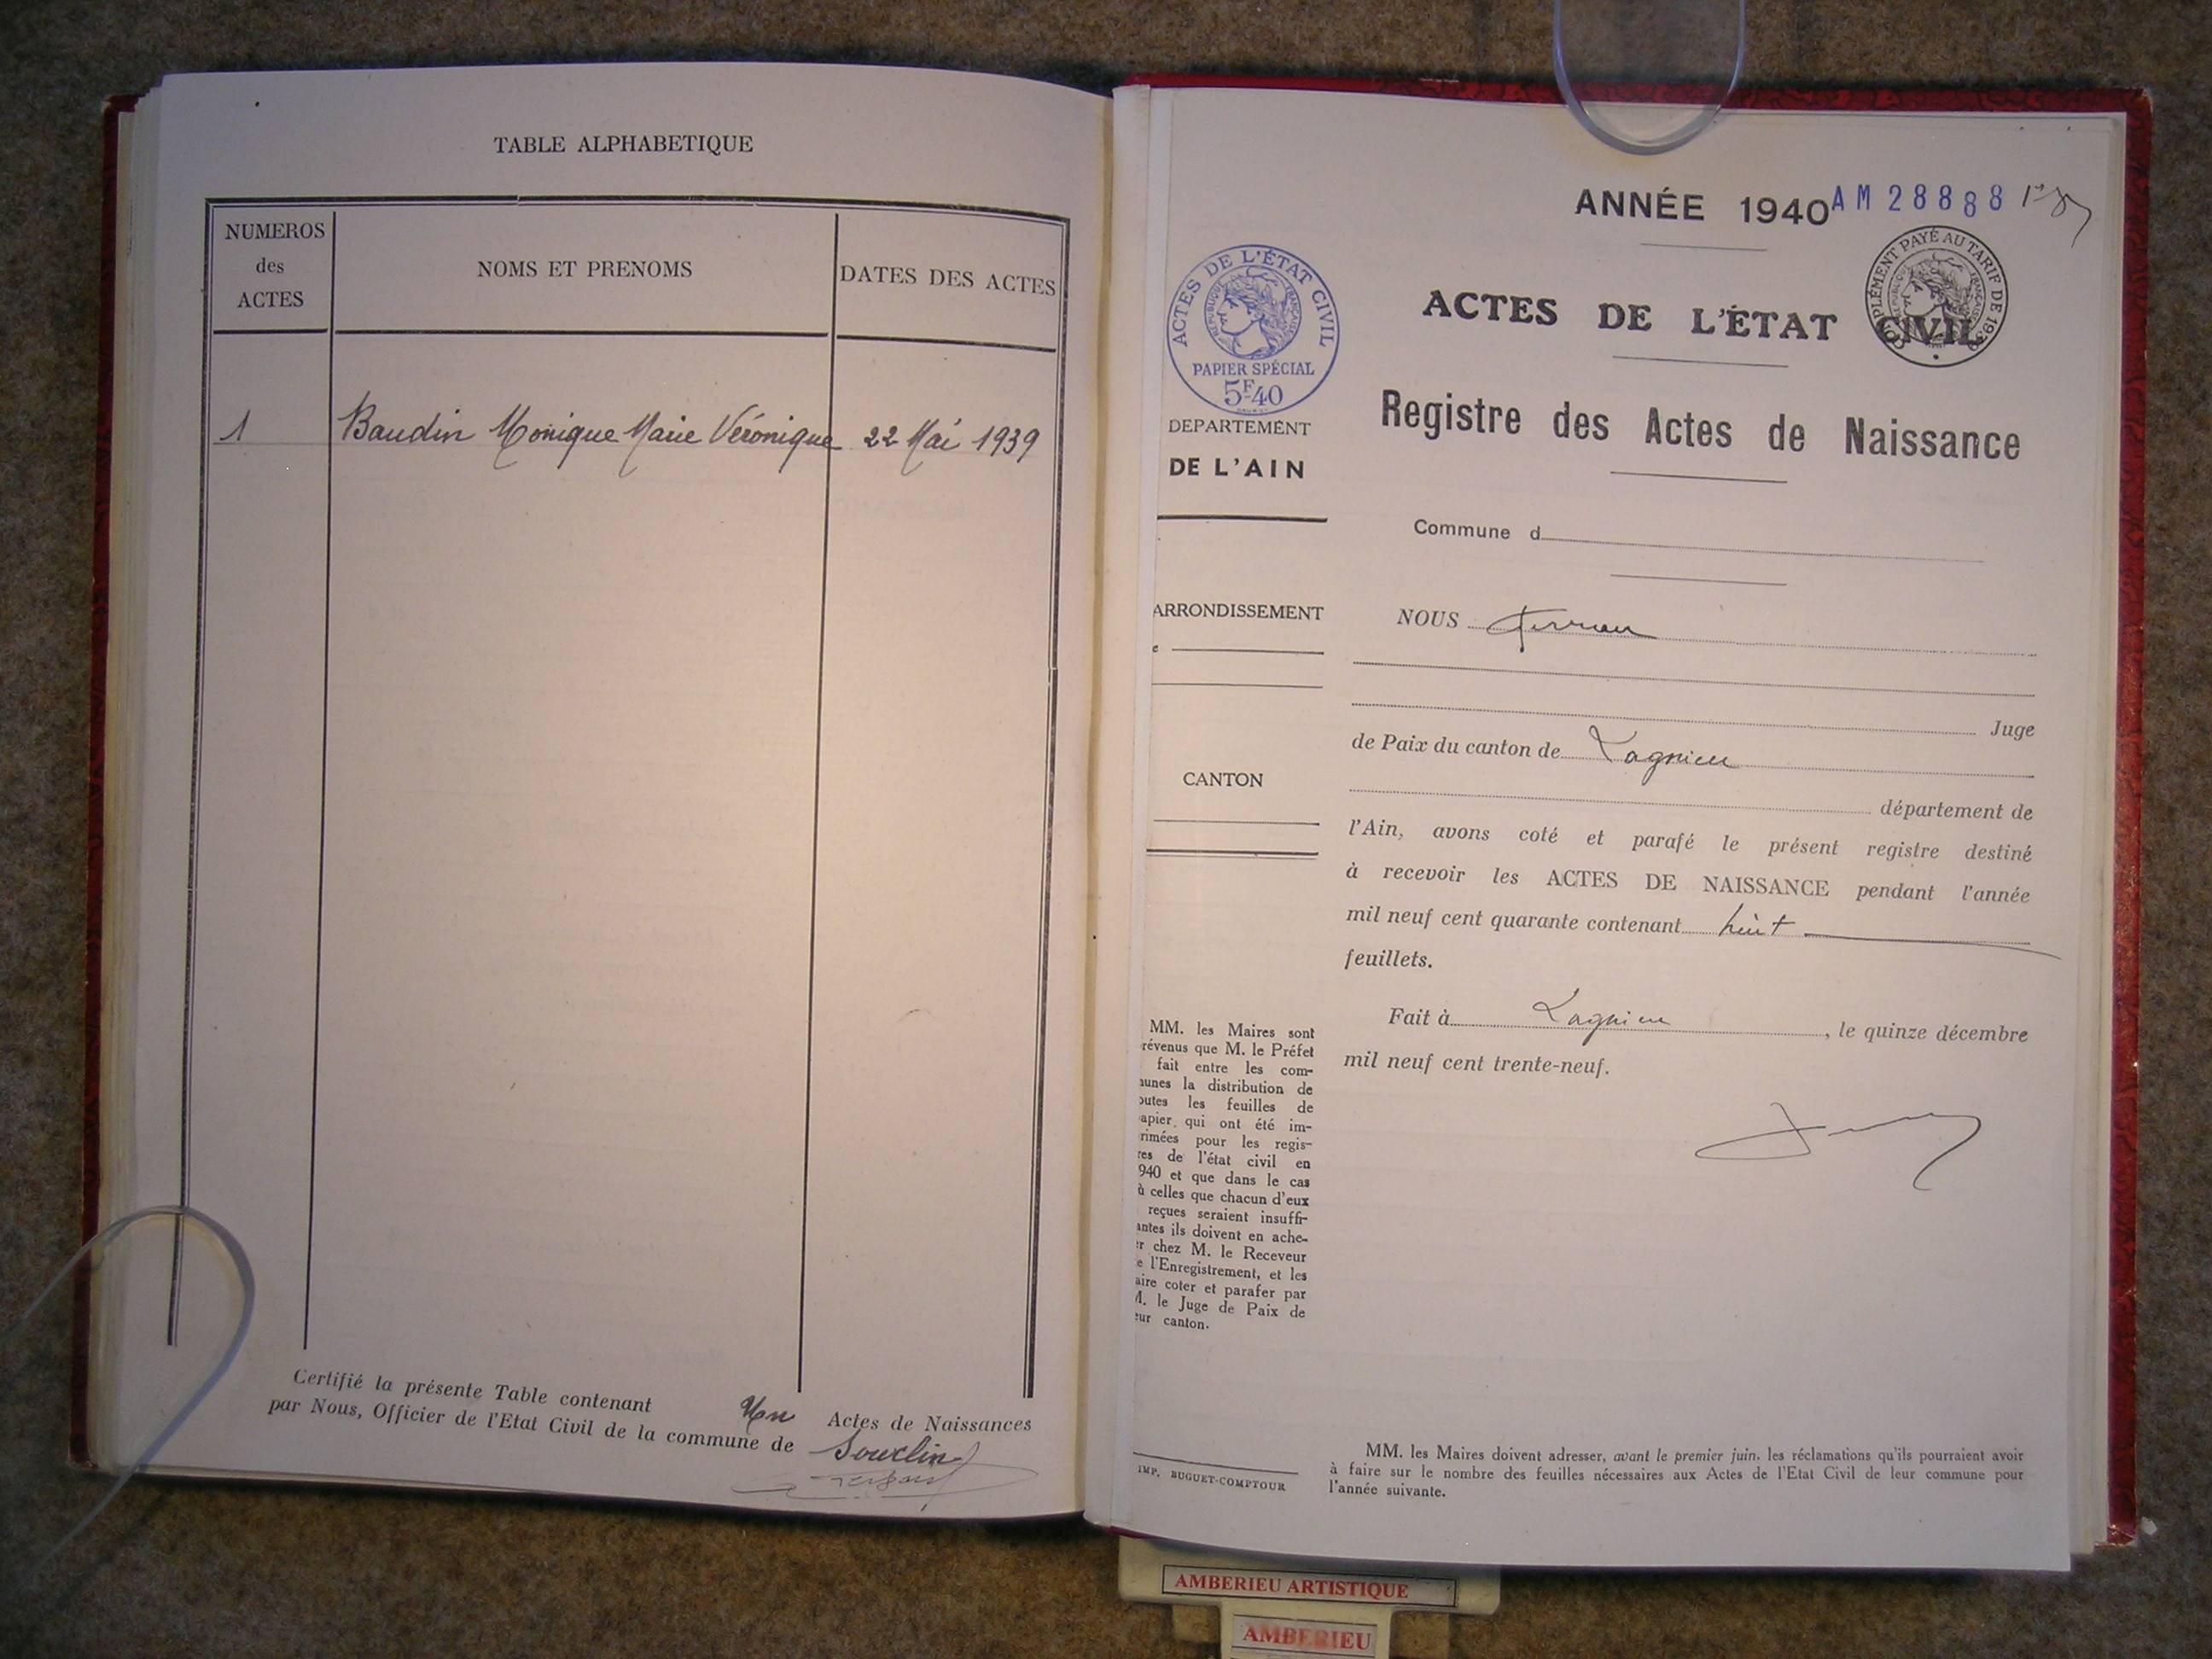 TABLE ALPHABETIQUE
NUMEROS
des
ACTES
NOMS ET PRENOMS
DATES DES ACTES
1 Baudin Monique Marie Véronique 22 Mai 1939
Certifié la présente Table contenant Un Actes de Naissances
par Nous, Officier de l'Etat Civil de la commune de Souclin
ANNÉE 1940 AM 28888
ACTES DE L'ÉTAT CIVIL
PAPIER SPÉCIAL
5F40
RÉPUBLIQUE FRANÇAISE
SUPPLÉMENT PAYÉ AU TARIF DE 193
ACTES DE L'ÉTAT CIVIL
Registre des Actes de Naissance
DEPARTEMENT
DE L'AIN
Commune d
ARRONDISSEMENT
e
CANTON
NOUS
Juge
de Paix du canton de Lagnieu
département de
l'Ain, avons coté et parafé le présent registre destiné
à recevoir les ACTES DE NAISSANCE pendant l'année
mil neuf cent quarante contenant huit
feuillets.
Fait à Lagnieu, le quinze décembre
mil neuf cent trente-neuf.
MM. les Maires sont
révenus que M. le Préfet
fait entre les com-
unes la distribution de
outes les feuilles de
apier qui ont été im-
rimées pour les regis-
res de l'état civil en
940 et que dans le cas
ù celles que chacun d'eux
reçues seraient insuffi-
antes ils doivent en ache-
er chez M. le Receveur
e l'Enregistrement, et les
aire coter et parafer par
M. le Juge de Paix de
eur canton.
IMP. BUGUET-COMPTOUR
MM. les Maires doivent adresser, avant le premier juin, les réclamations qu'ils pourraient avoir
à faire sur le nombre des feuilles nécessaires aux Actes de l'Etat Civil de leur commune pour
l'année suivante.
AMBERIEU ARTISTIQUE
AMBERIEU